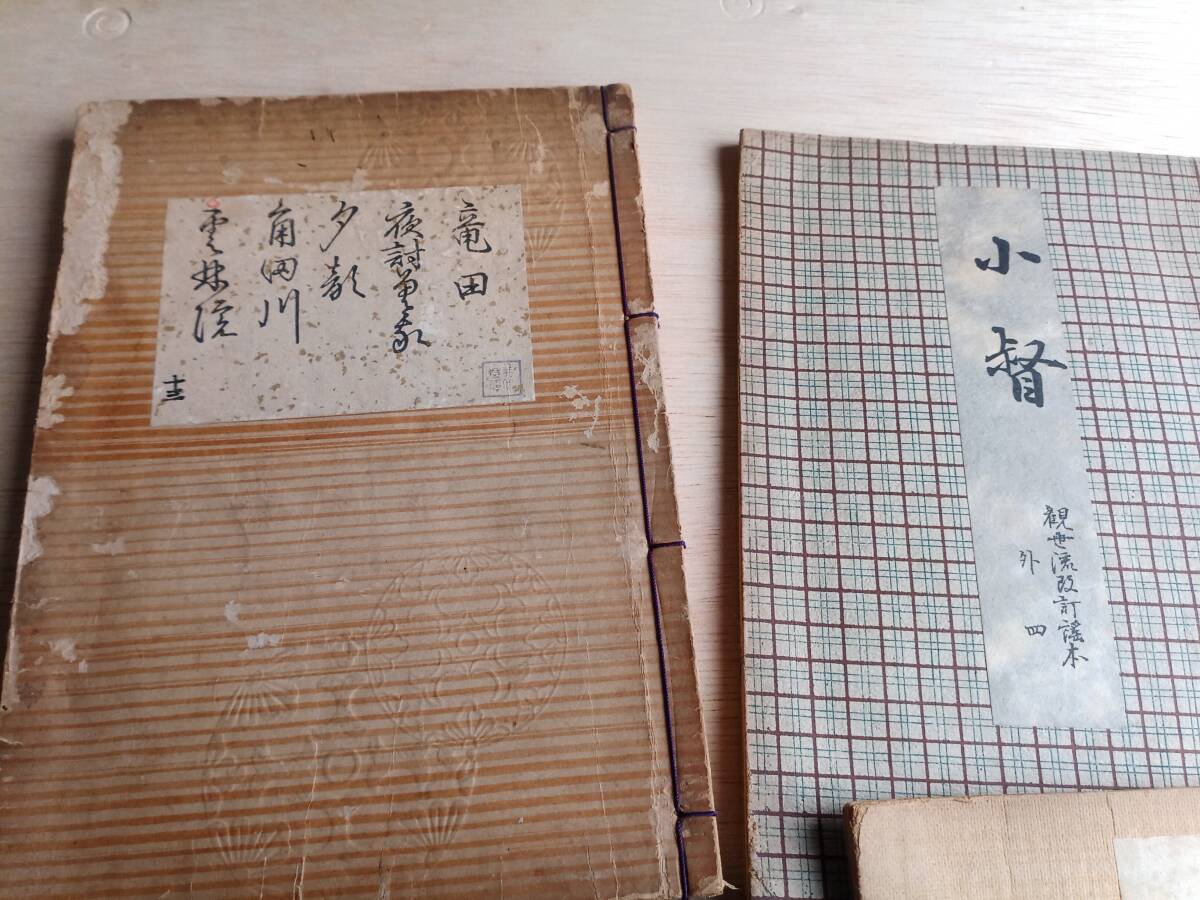 竜田
夜討曽我
夕顔
角田川
雲林院
十三
小督
観世流改訂謡本
外四